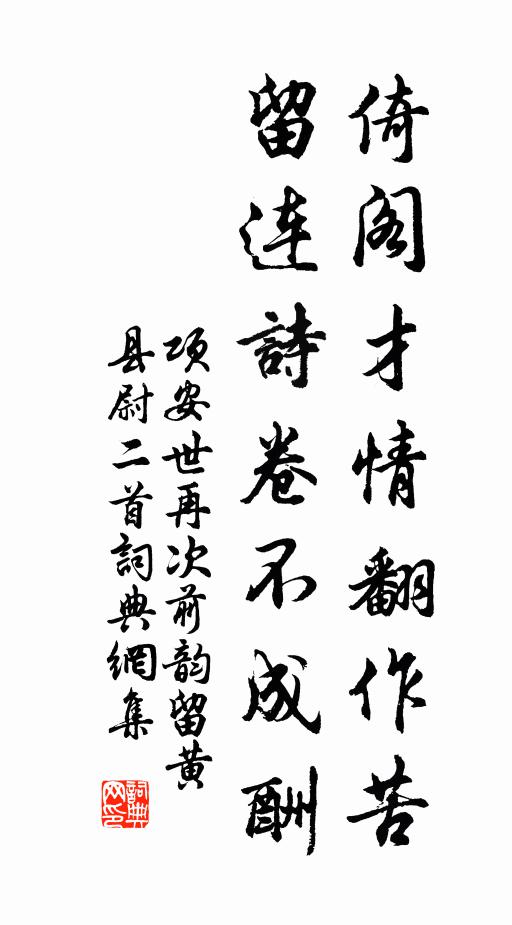 倚阁才情翻作苦
留連詩卷不成酬
项安世再次前韵留黄
县尉二首詞典網集
詞典
网印